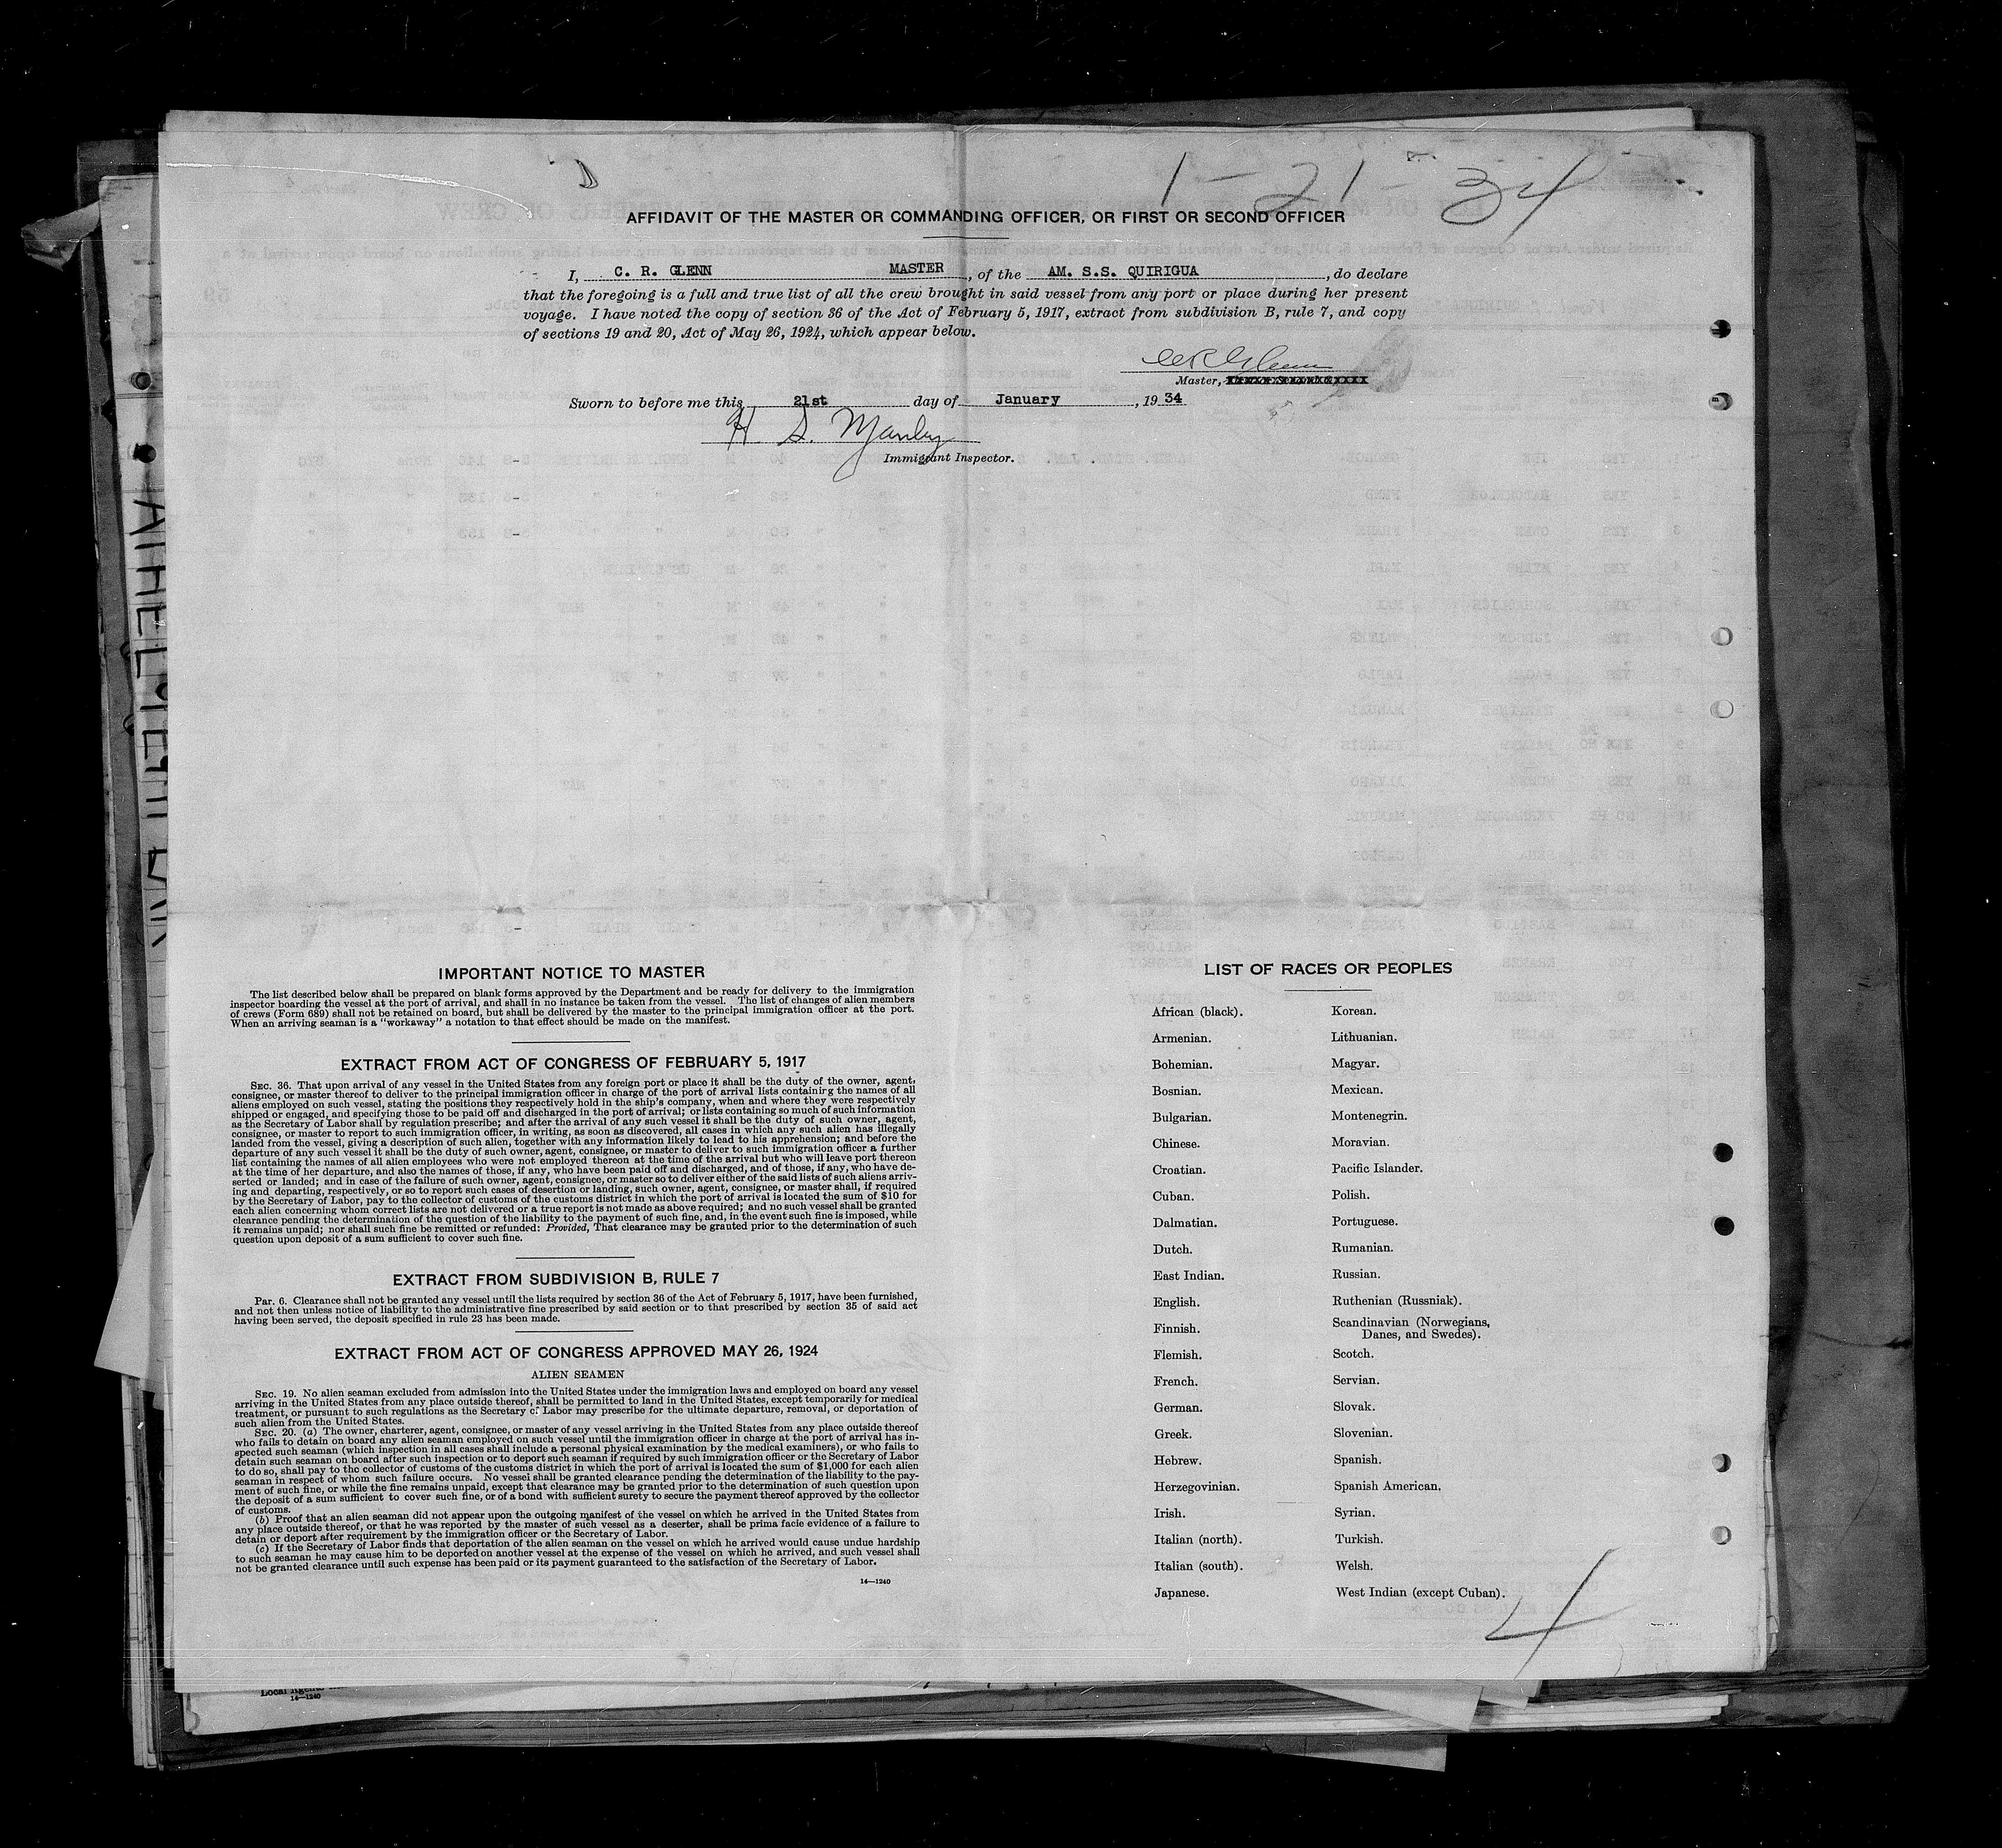 1-21-34
AFFIDAVIT OF THE MASTER OR COMMANDING OFFICER, OR FIRST OR SECOND OFFICER
I, C. R. GLENN MASTER, of the AM. S.S. QUIRIGUA, do declare
that the foregoing is a full and true list of all the crew brought in said vessel from any port or place during her present
voyage. I have noted the copy of section 36 of the Act of February 5, 1917, extract from subdivision B, rule 7, and copy
of sections 19 and 20, Act of May 26, 1924, which appear below.
C R Glenn
Master,
Sworn to before me this 21st day of January, 1934
H S. Manley
Immigrant Inspector.
IMPORTANT NOTICE TO MASTER
The list described below shall be prepared on blank forms approved by the Department and be ready for delivery to the immigration
inspector boarding the vessel at the port of arrival, and shall in no instance be taken from the vessel. The list of changes of alien members
of crews (Form 689) shall not be retained on board, but shall be delivered by the master to the principal immigration officer at the port.
When an arriving seaman is a "workaway" a notation to that effect should be made on the manifest.
EXTRACT FROM ACT OF CONGRESS OF FEBRUARY 5, 1917
SEC. 36. That upon arrival of any vessel in the United States from any foreign port or place it shall be the duty of the owner, agent,
consignee, or master thereof to deliver to the principal immigration officer in charge of the port of arrival lists containing the names of all
aliens employed on such vessel, stating the positions they respectively hold in the ship's company, when and where they were respectively
shipped or engaged, and specifying those to be paid off and discharged in the port of arrival; or lists containing so much of such information
as the Secretary of Labor shall by regulation prescribe; and after the arrival of any such vessel it shall be the duty of such owner, agent,
consignee, or master to report to such immigration officer, in writing, as soon as discovered, all cases in which any such alien has illegally
landed from the vessel, giving a description of such alien, together with any information likely to lead to his apprehension; and before the
departure of any such vessel it shall be the duty of such owner, agent, consignee, or master to deliver to such immigration officer a further
list containing the names of all alien employees who were not employed thereon at the time of the arrival but who will leave port thereon
at the time of her departure, and also the names of those, if any, who have been paid off and discharged, and of those, if any, who have de-
serted or landed; and in case of the failure of such owner, agent, consignee, or master so to deliver either of the said lists of such aliens arriv-
ing and departing, respectively, or so to report such cases of desertion or landing, such owner, agent, consignee, or master shall, if required
by the Secretary of Labor, pay to the collector of customs of the customs district in which the port of arrival is located the sum of $10 for
each alien concerning whom correct lists are not delivered or a true report is not made as above required; and no such vessel shall be granted
clearance pending the determination of the question of the liability to the payment of such fine, and, in the event such fine is imposed, while
it remains unpaid; nor shall such fine be remitted or refunded: Provided, That clearance may be granted prior to the determination of such
question upon deposit of a sum sufficient to cover such fine.
EXTRACT FROM SUBDIVISION B, RULE 7
PAR. 6. Clearance shall not be granted any vessel until the lists required by section 36 of the Act of February 5, 1917, have been furnished,
and not then unless notice of liability to the administrative fine prescribed by said section or to that prescribed by section 35 of said act
having been served, the deposit specified in rule 23 has been made.
EXTRACT FROM ACT OF CONGRESS APPROVED MAY 26, 1924
ALIEN SEAMEN
SEC. 19. No alien seaman excluded from admission into the United States under the immigration laws and employed on board any vessel
arriving in the United States from any place outside thereof, shall be permitted to land in the United States, except temporarily for medical
treatment, or pursuant to such regulations as the Secretary of Labor may prescribe for the ultimate departure, removal, or deportation of
such alien from the United States.
SEC. 20. (a) The owner, charterer, agent, consignee, or master of any vessel arriving in the United States from any place outside thereof
who fails to detain on board any alien seaman employed on such vessel until the immigration officer in charge at the port of arrival has in-
spected such seaman (which inspection in all cases shall include a personal physical examination by the medical examiners), or who fails to
detain such seaman on board after such inspection or to deport such seaman if required by such immigration officer or the Secretary of Labor
to do so, shall pay to the collector of customs of the customs district in which the port of arrival is located the sum of $1,000 for each alien
seaman in respect of whom such failure occurs. No vessel shall be granted clearance pending the determination of the liability to the pay-
ment of such fine, or while the fine remains unpaid, except that clearance may be granted prior to the determination of such question upon
the deposit of a sum sufficient to cover such fine, or of a bond with sufficient surety to secure the payment thereof approved by the collector
of customs.
(b) Proof that an alien seaman did not appear upon the outgoing manifest of the vessel on which he arrived in the United States from
any place outside thereof, or that he was reported by the master of such vessel as a deserter, shall be prima facie evidence of a failure to
detain or deport after requirement by the immigration officer or the Secretary of Labor.
(c) If the Secretary of Labor finds that deportation of the alien seaman on the vessel on which he arrived would cause undue hardship
to such seaman he may cause him to be deported on another vessel at the expense of the vessel on which he arrived, and such vessel shall
not be granted clearance until such expense has been paid or its payment guaranteed to the satisfaction of the Secretary of Labor.
14—1240
LIST OF RACES OR PEOPLES
African (black).
Armenian.
Bohemian.
Bosnian.
Bulgarian.
Chinese.
Croatian.
Cuban.
Dalmatian.
Dutch.
East Indian.
English.
Finnish.
Flemish.
French.
German.
Greek.
Hebrew.
Herzegovinian.
Irish.
Italian (north).
Italian (south).
Japanese.
Korean.
Lithuanian.
Magyar.
Mexican.
Montenegrin.
Moravian.
Pacific Islander.
Polish.
Portuguese.
Rumanian.
Russian.
Ruthenian (Russniak).
Scandinavian (Norwegians,
Danes, and Swedes).
Scotch.
Servian.
Slovak.
Slovenian.
Spanish.
Spanish American.
Syrian.
Turkish.
Welsh.
West Indian (except Cuban).
4
14—1240